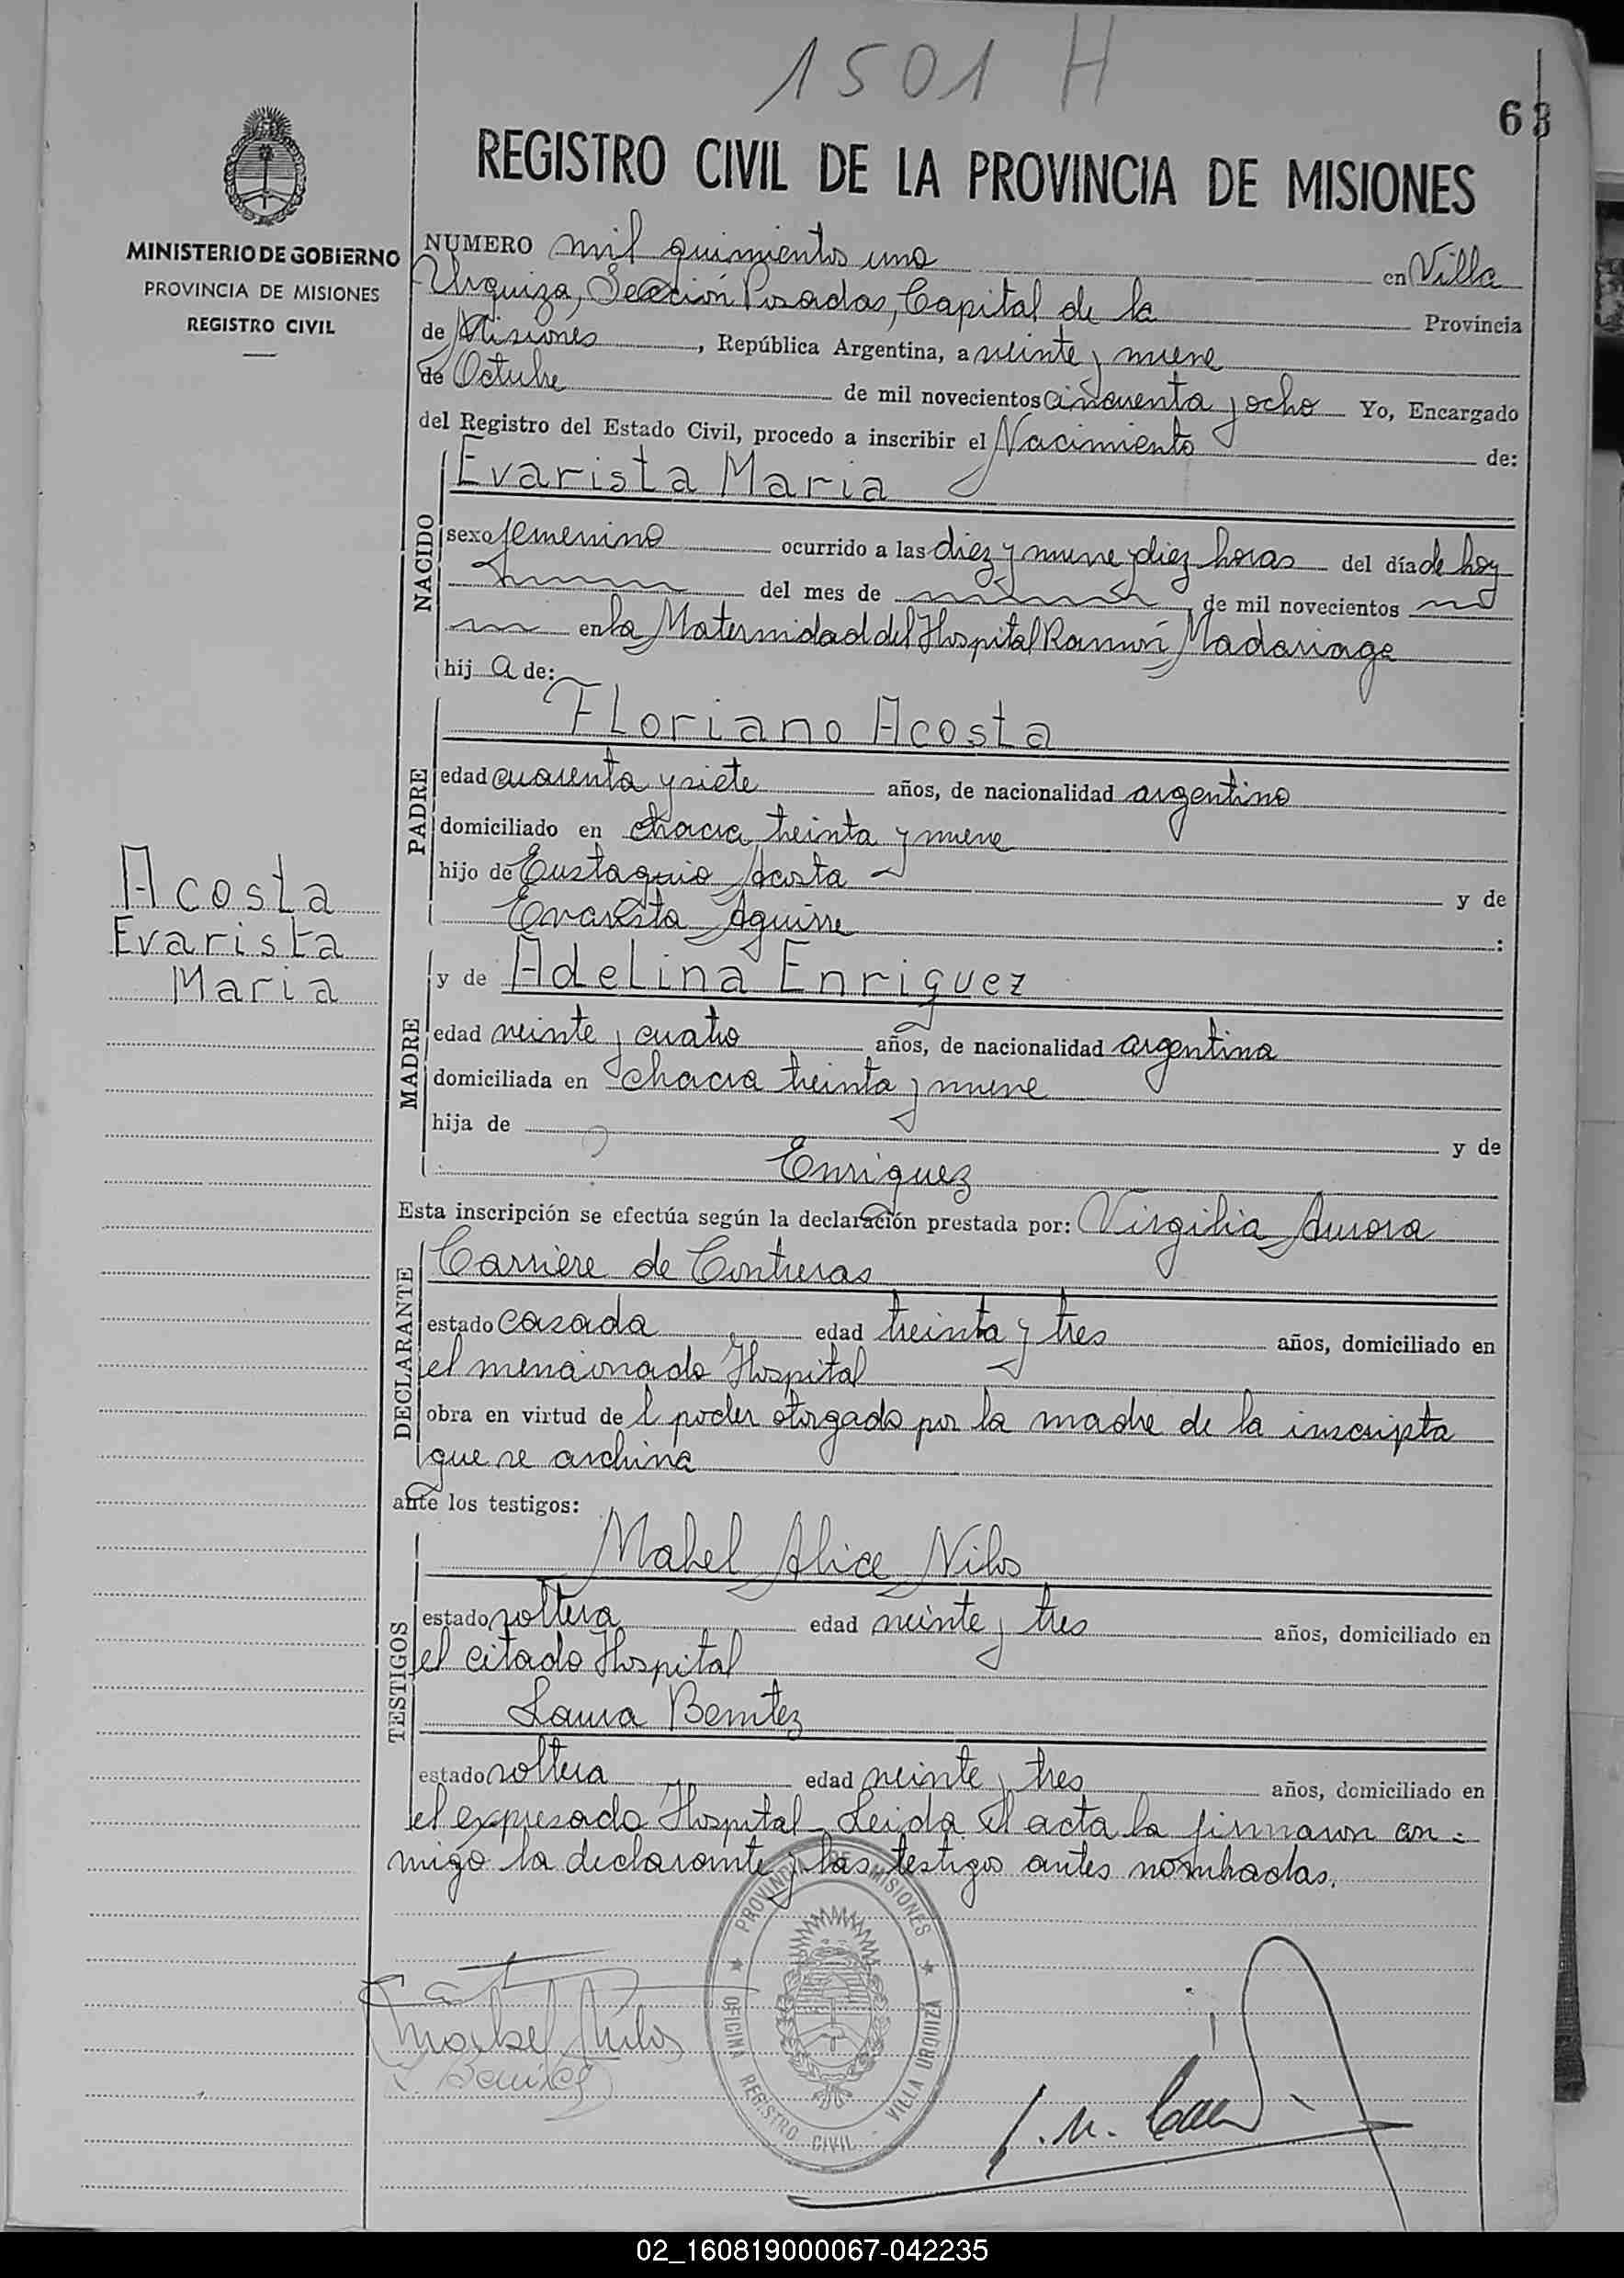 1501 H
63
REGISTRO CIVIL DE LA PROVINCIA DE MISIONES
MINISTERIO DE GOBIERNO
PROVINCIA DE MISIONES
REGISTRO CIVIL
NUMERO mil quinientos uno en Villa
Urquiza, Sección Posadas, Capital de la Provincia
de Misiones, República Argentina, a veinte y nueve
de Octubre de mil novecientos cincuenta y ocho Yo, Encargado
del Registro del Estado Civil, procedo a inscribir el Nacimiento de:
NACIDO
Evarista Maria
sexo femenino ocurrido a las diez y nueve y diez horas del día de hoy
del mes de de mil novecientos
en la Maternidad del Hospital Ramón Madariaga
hija de:
PADRE
Floriano Acosta
edad cuarenta y siete años, de nacionalidad argentino
domiciliado en chacra treinta y nueve
hijo de Eustaquio Acosta y de
Evarista Aguirre :
Acosta
Evarista
Maria
MADRE
y de Adelina Enriquez
edad veinte y cuatro años, de nacionalidad argentina
domiciliada en chacra treinta y nueve
hija de y de
Enriquez
Esta inscripción se efectúa según la declaración prestada por: Virgilia Aurora
DECLARANTE
Carriere de Contreras
estado casada edad treinta y tres años, domiciliado en
el mencionado Hospital
obra en virtud del poder otorgado por la madre de la inscripta
que se archiva
ante los testigos:
TESTIGOS
Mabel Alice Nilos
estado soltera edad veinte y tres años, domiciliado en
el citado Hospital
Laura Benitez
estado soltera edad veinte y tres años, domiciliado en
el expresado Hospital - Leida el acta la firmaron con=
migo la declarante y las testigos antes nombradas.
PROVINCIA DE MISIONES
OFICINA REGISTRO CIVIL - VILLA URQUIZA
Mabel Nilos
L. Benitez
02_160819000067-042235